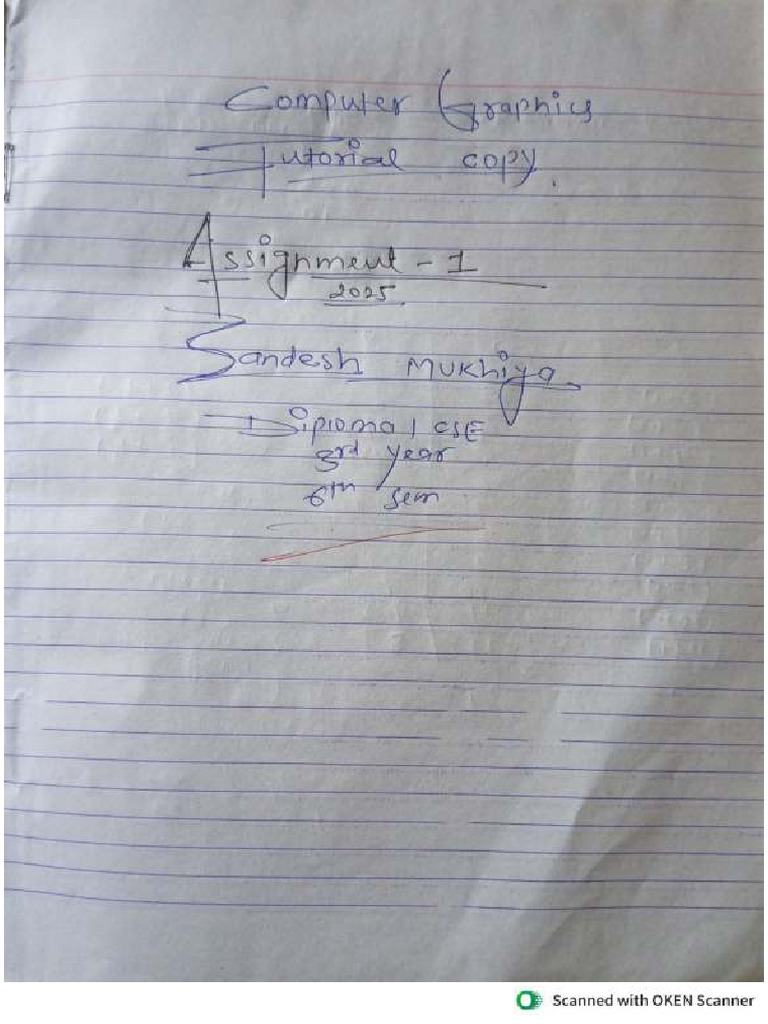 Computer Graphics
Tutorial copy.
Assignment - 1
2025.
Sandesh Mukhiya
Diploma / CSE
3rd year
6th sem
Scanned with OKEN Scanner